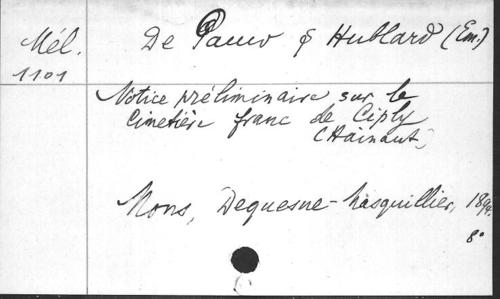 Mél. De Pauw & Hublard (Em.)
1101
Notice préliminaire sur le
Cimetière franc de Ciply
(Hainaut)
Mons, Dequesne-Masquillier, 1894.
8°